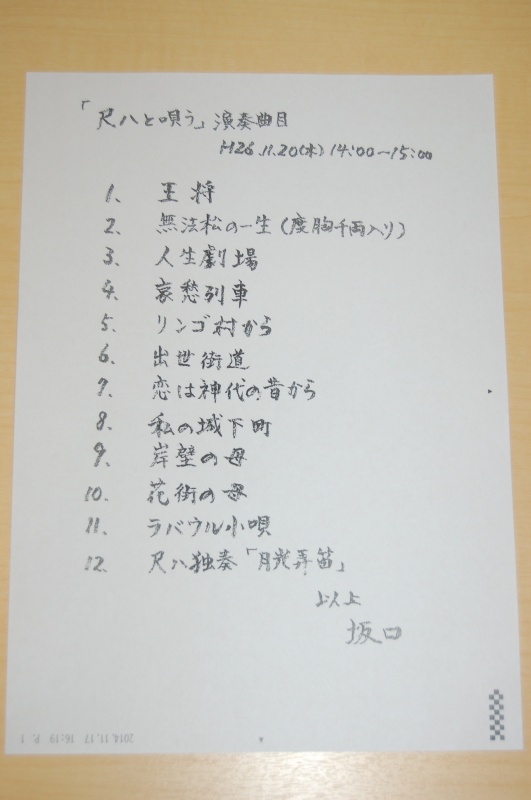 「尺八と唄う」演奏曲目
H26.11.20(木) 14:00～15:00
1、 王将
2、 無法松の一生(度胸千両入り)
3、 人生劇場
4、 哀愁列車
5、 リンゴ村から
6、 出世街道
7、 恋は神代の昔から
8、 私の城下町
9、 岸壁の母
10、 花街の母
11、 ラバウル小唄
12、 尺八独奏「月光弄笛」
以上
坂口
2014.11.17 16:19 P. 1